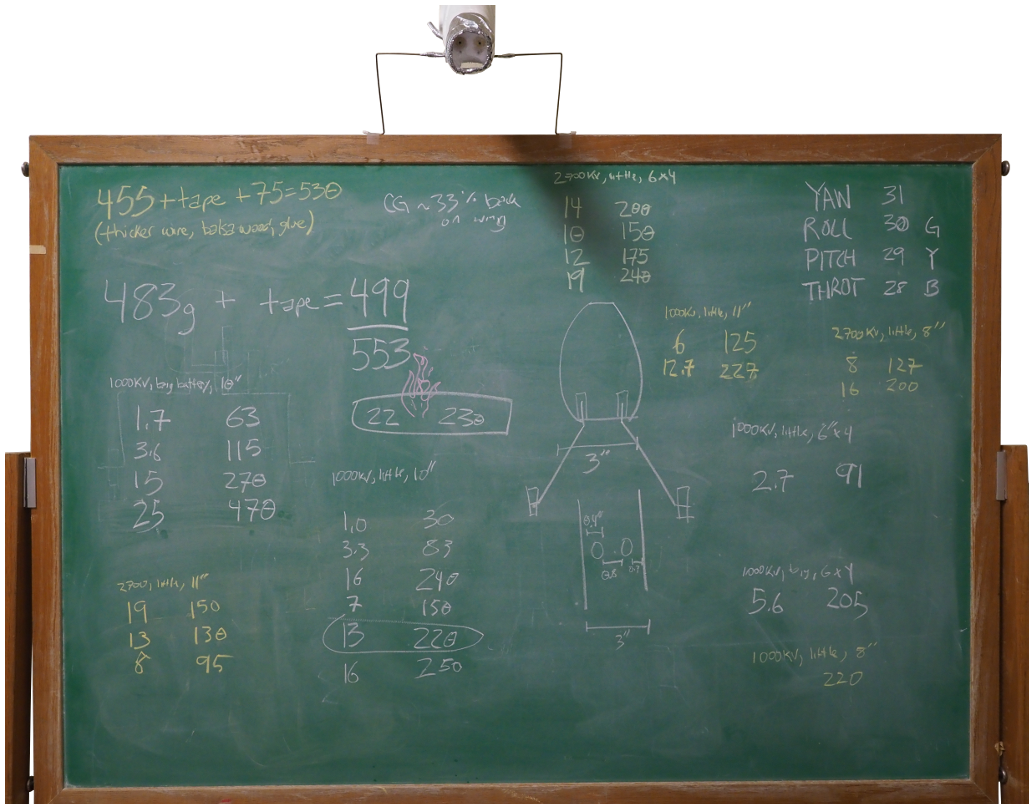 455 + tape + 75 = 530
(thicker wire, balsa wood, glue)
CG ~33% back
on wing
2700KV, little, 6x4
14 200
10 150
12 175
19 240
YAW 31
ROLL 30 G
PITCH 29 Y
THROT 28 B
483g + tape = 499
553
22 230
1000KV, little, 11"
6 125
12.7 227
2700KV, little, 8"
8 127
16 200
1000KV, big battery, 10"
1.7 63
3.6 115
15 270
25 470
1000KV, little, 10"
1.0 30
3.3 83
16 240
7 150
13 220
16 250
3"
0.4"
0.8
3"
1000KV, little, 6"x4
2.7 91
1000KV, big, 6x4
5.6 205
1000KV, little, 8"
220
2700, little, 11"
19 150
13 130
8 95